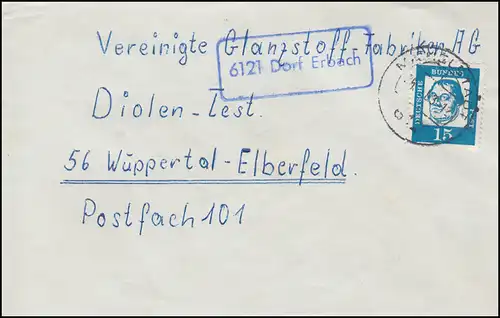 Vereinigte Glanzstoff-Fabriken AG
6121 Dorf Erbach
Diolen-Test.
56 Wuppertal-Elberfeld.
Postfach 101
DEUTSCHE
BUNDES
15